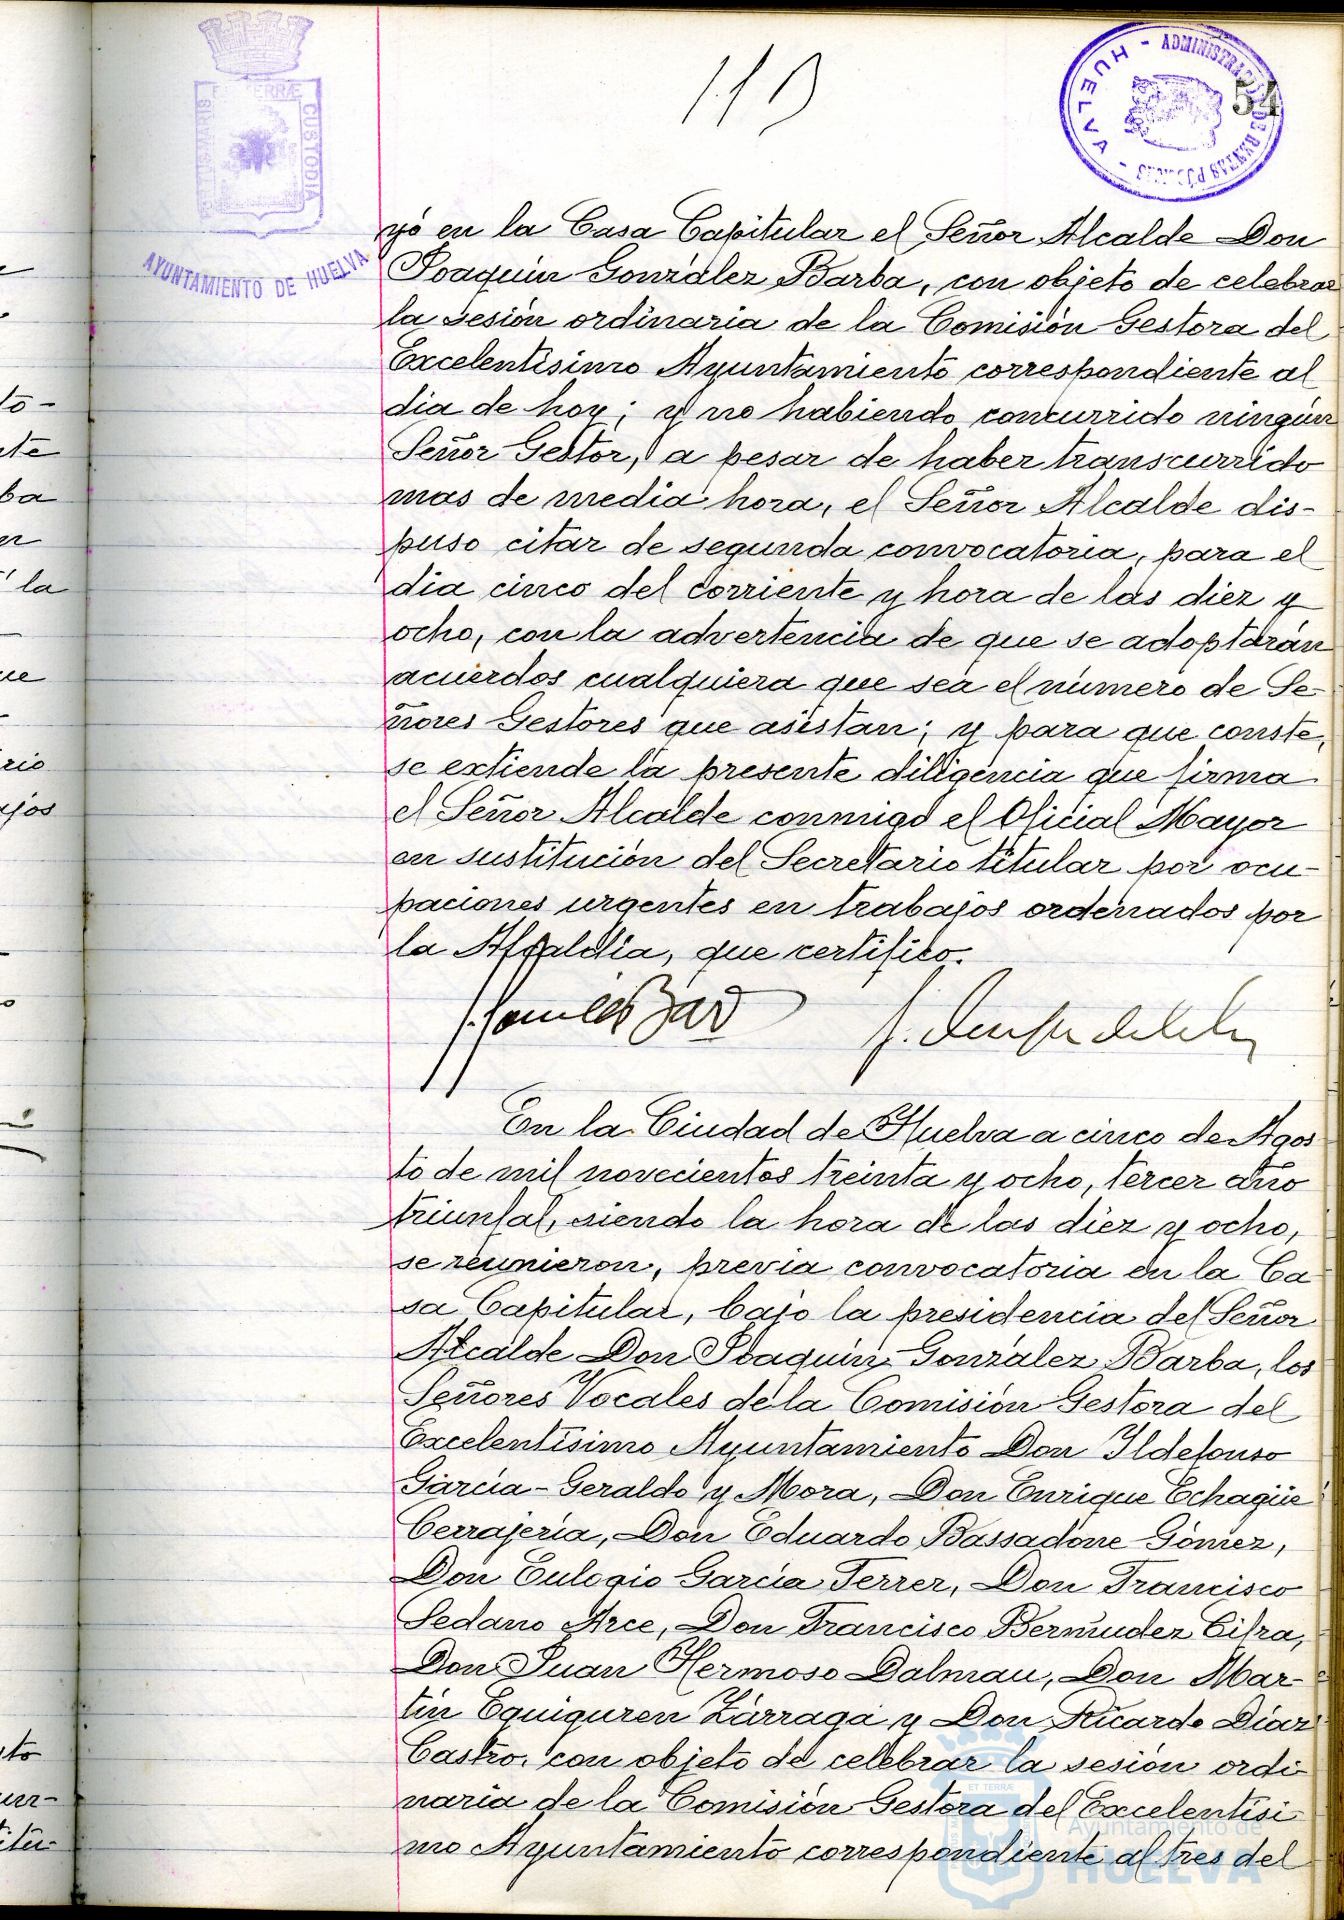 113
54
ADMINISTRACION DE RENTAS PÚBLICAS - HUELVA -
PORTUS MARIS ET TERRÆ CUSTODIA
AYUNTAMIENTO DE HUELVA
yó en la Casa Capitular el Señor Alcalde Don
Joaquín González Barba, con objeto de celebrar
la sesión ordinaria de la Comisión Gestora del
Excelentísimo Ayuntamiento correspondiente al
día de hoy; y no habiendo concurrido ningún
Señor Gestor, a pesar de haber transcurrido
mas de media hora, el Señor Alcalde dis-
puso citar de segunda convocatoria, para el
día cinco del corriente y hora de las diez y
ocho, con la advertencia de que se adoptarán
acuerdos cualquiera que sea el número de Se-
ñores Gestores que asistan; y para que conste,
se extiende la presente diligencia que firma
el Señor Alcalde conmigo el Oficial Mayor
en sustitución del Secretario titular por ocu-
paciones urgentes en trabajos ordenados por
la Alcaldía, que certifico.
En la Ciudad de Huelva a cinco de Agos
to de mil novecientos treinta y ocho, tercer año
triunfal, siendo la hora de las diez y ocho,
se reunieron, previa convocatoria en la Ca
sa Capitular, bajo la presidencia del Señor
Alcalde Don Joaquín González Barba, los
Señores Vocales de la Comisión Gestora del
Excelentísimo Ayuntamiento Don Ildefonso
García-Geraldo y Mora, Don Enrique Echagüe
Cerrajería, Don Eduardo Bassadone Gómez,
Don Eulogio García Ferrer, Don Francisco
Sedano Arce, Don Francisco Bermudez Cifra,
Don Juan Hermoso Dalmau, Don Mar-
tín Eguiguren Zárraga y Don Ricardo Díaz
Castro, con objeto de celebrar la sesión ordi-
naria de la Comisión Gestora del Excelentísi-
mo Ayuntamiento correspondiente al tres del
Ayuntamiento de
HUELVA